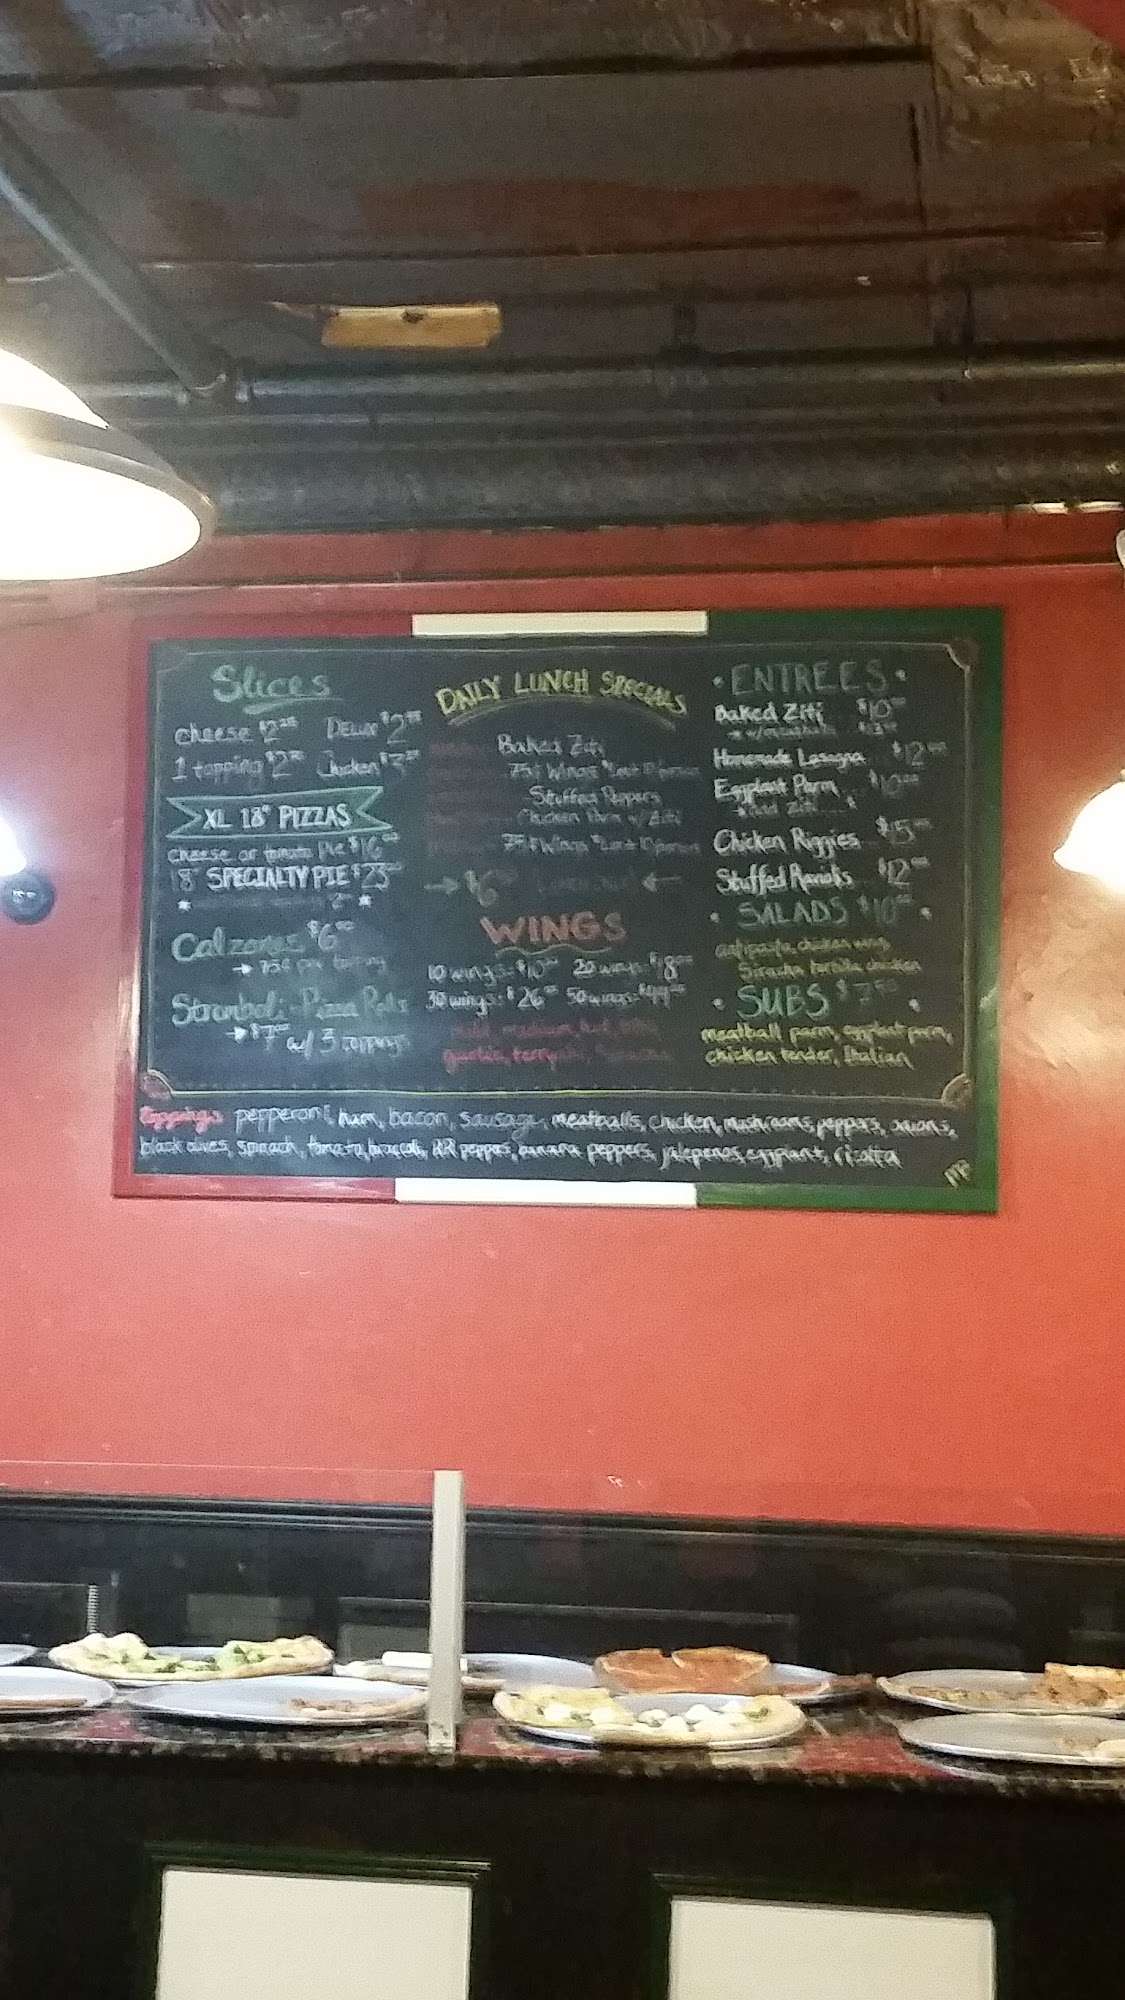 Slices
cheese $2²⁵ Deluxe $2⁷⁵
1 topping $2⁵⁰ Chicken $3²⁵
XL 18" PIZZAS
cheese or tomato Pie $16⁰⁰
18" SPECIALTY PIE $23⁰⁰
Calzones $6⁰⁰
→ 75¢ per topping
Stromboli-Pizza Rolls
→ $7⁰⁰ w/ 3 toppings
DAILY LUNCH SPECIALS
Baked Ziti
75¢ Wings
Stuffed Peppers
Chicken Parm w/ Ziti
75¢ Wings
→ $6 ←
WINGS
10 wings: $10⁰⁰ 20 wings: $18⁰⁰
30 wings: $26 50 wings:
mild, medium, hot,
garlic,
• ENTREES •
Baked Ziti $10
w/ meatballs
Homemade Lasagna $12
Eggplant Parm $10⁰⁰
Chicken Riggies $15
Stuffed Raviolis $12⁰⁰
• SALADS $10 •
antipasta, chicken wing,
Siracha tortilla chicken
• SUBS $7⁵⁰ •
meatball parm, eggplant parm,
chicken tender, Italian
Toppings pepperoni, ham, bacon, sausage, meatballs, chicken, mushrooms, peppers, onions,
black olives, spinach, tomato, brocoli, RR peppers, banana peppers, jalepenos, eggplant, ricotta